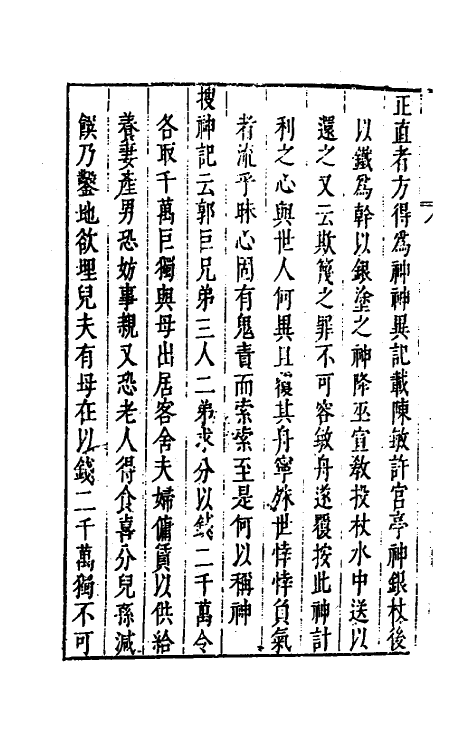 正直者方得爲神神異記載陳敏許官亭神銀杖後
以鐵爲幹以銀塗之神降巫宣敎投杖水中送以
還之又云欺篾之罪不可容敏舟遂覆按此神計
利之心與世人何異且覆其舟寧殊世悖悖負氣
者流乎昧心固有鬼責而索索至是何以稱神
搜神記云郭巨兄弟三人二弟求分以錢二千萬令
各取千萬巨獨與母出居客舍夫婦傭賃以供給
養妻產男恐妨事親又恐老人得食喜分兒孫減
饌乃鑿地欲埋兒夫有母在以錢二千萬獨不可